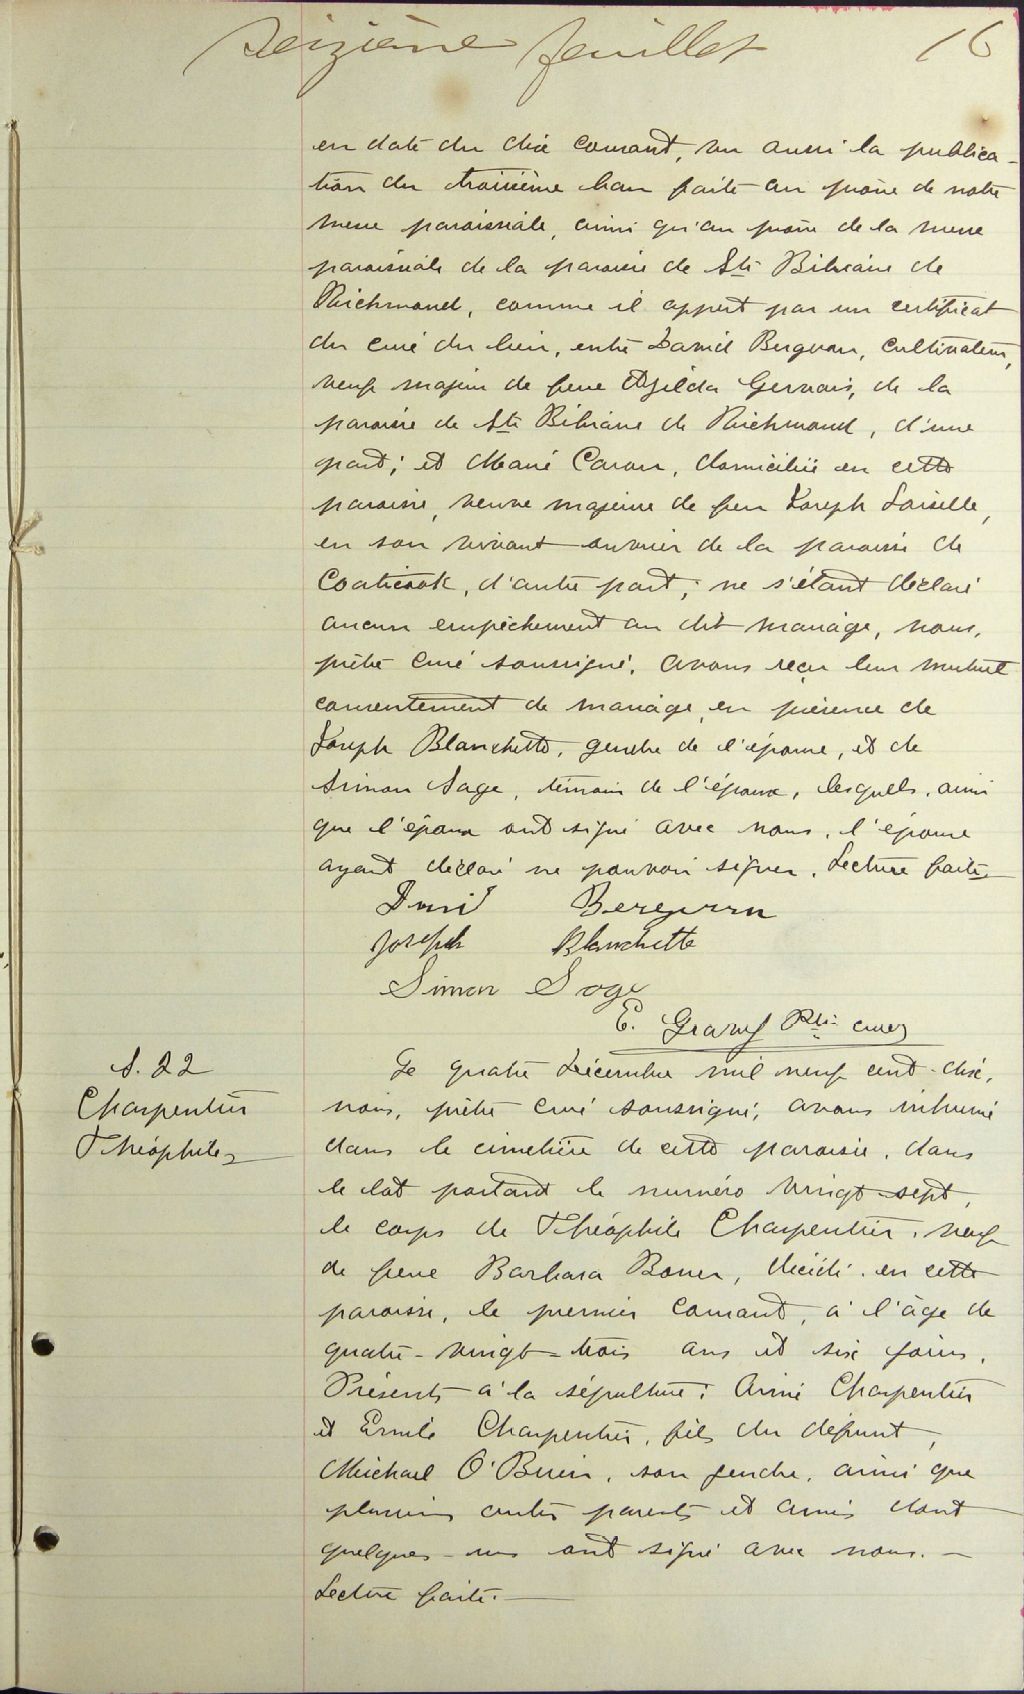 Seizième feuillet 16
en date du dix courant, vu aussi la publica-
tion du troisième ban faite au prône de notre
messe paroissiale, ainsi qu'au prône de la messe
paroissiale de la paroisse de Ste Bibiane de
Richmond, comme il appert par un certificat
du curé du lieu, entre David Bergeron, cultivateur,
veuf majeur de feue Exilda Gervais, de la
paroisse de Ste Bibiane de Richmond, d'une
part; et Marie Caron, domiciliée en cette
paroisse, veuve majeure de feu Joseph Loiselle,
en son vivant ouvrier de la paroisse de
Coaticook, d'autre part; ne s'étant déclaré
aucun empêchement au dit mariage, nous,
prêtre curé soussigné, avons reçu leur mutuel
consentement de mariage, en présence de
Joseph Blanchette, gendre de l'épouse, et de
Simon Sage, témoin de l'époux, lesquels, ainsi
que l'époux ont signé avec nous, l'épouse
ayant déclaré ne pouvoir signer. Lecture faite
David Bergeron
Joseph Blanchette
Simon Sage
E. Gravel Ptre curé
S. 22
Charpentier
Théophile
Le quatre Décembre mil neuf cent-dix,
nous, prêtre curé soussigné, avons inhumé
dans le cimetière de cette paroisse, dans
le lot portant le numéro vingt-sept,
le corps de Théophile Charpentier, veuf
de feue Barbara Boner, décédé en cette
paroisse, le premier courant, à l'âge de
quatre-vingt-trois ans et six jours.
Présents à la sépulture: Aimé Charpentier
et Emile Charpentier, fils du défunt,
Michael O'Brien, son gendre, ainsi que
plusieurs autres parents et amis dont
quelques-uns ont signé avec nous.—
Lecture faite.—